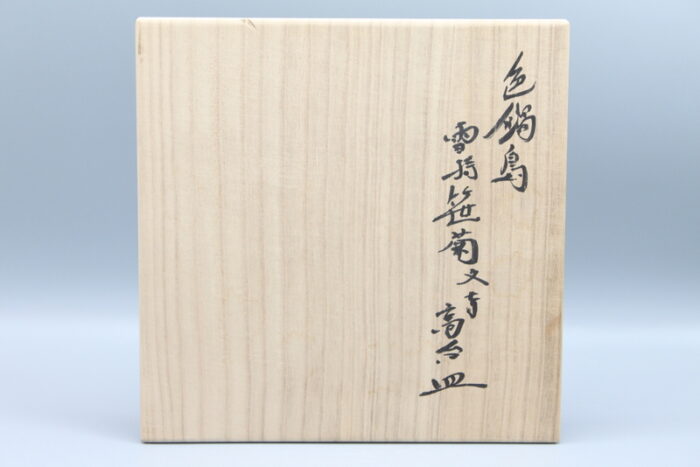 色鍋島
雪持笹菊文高台皿